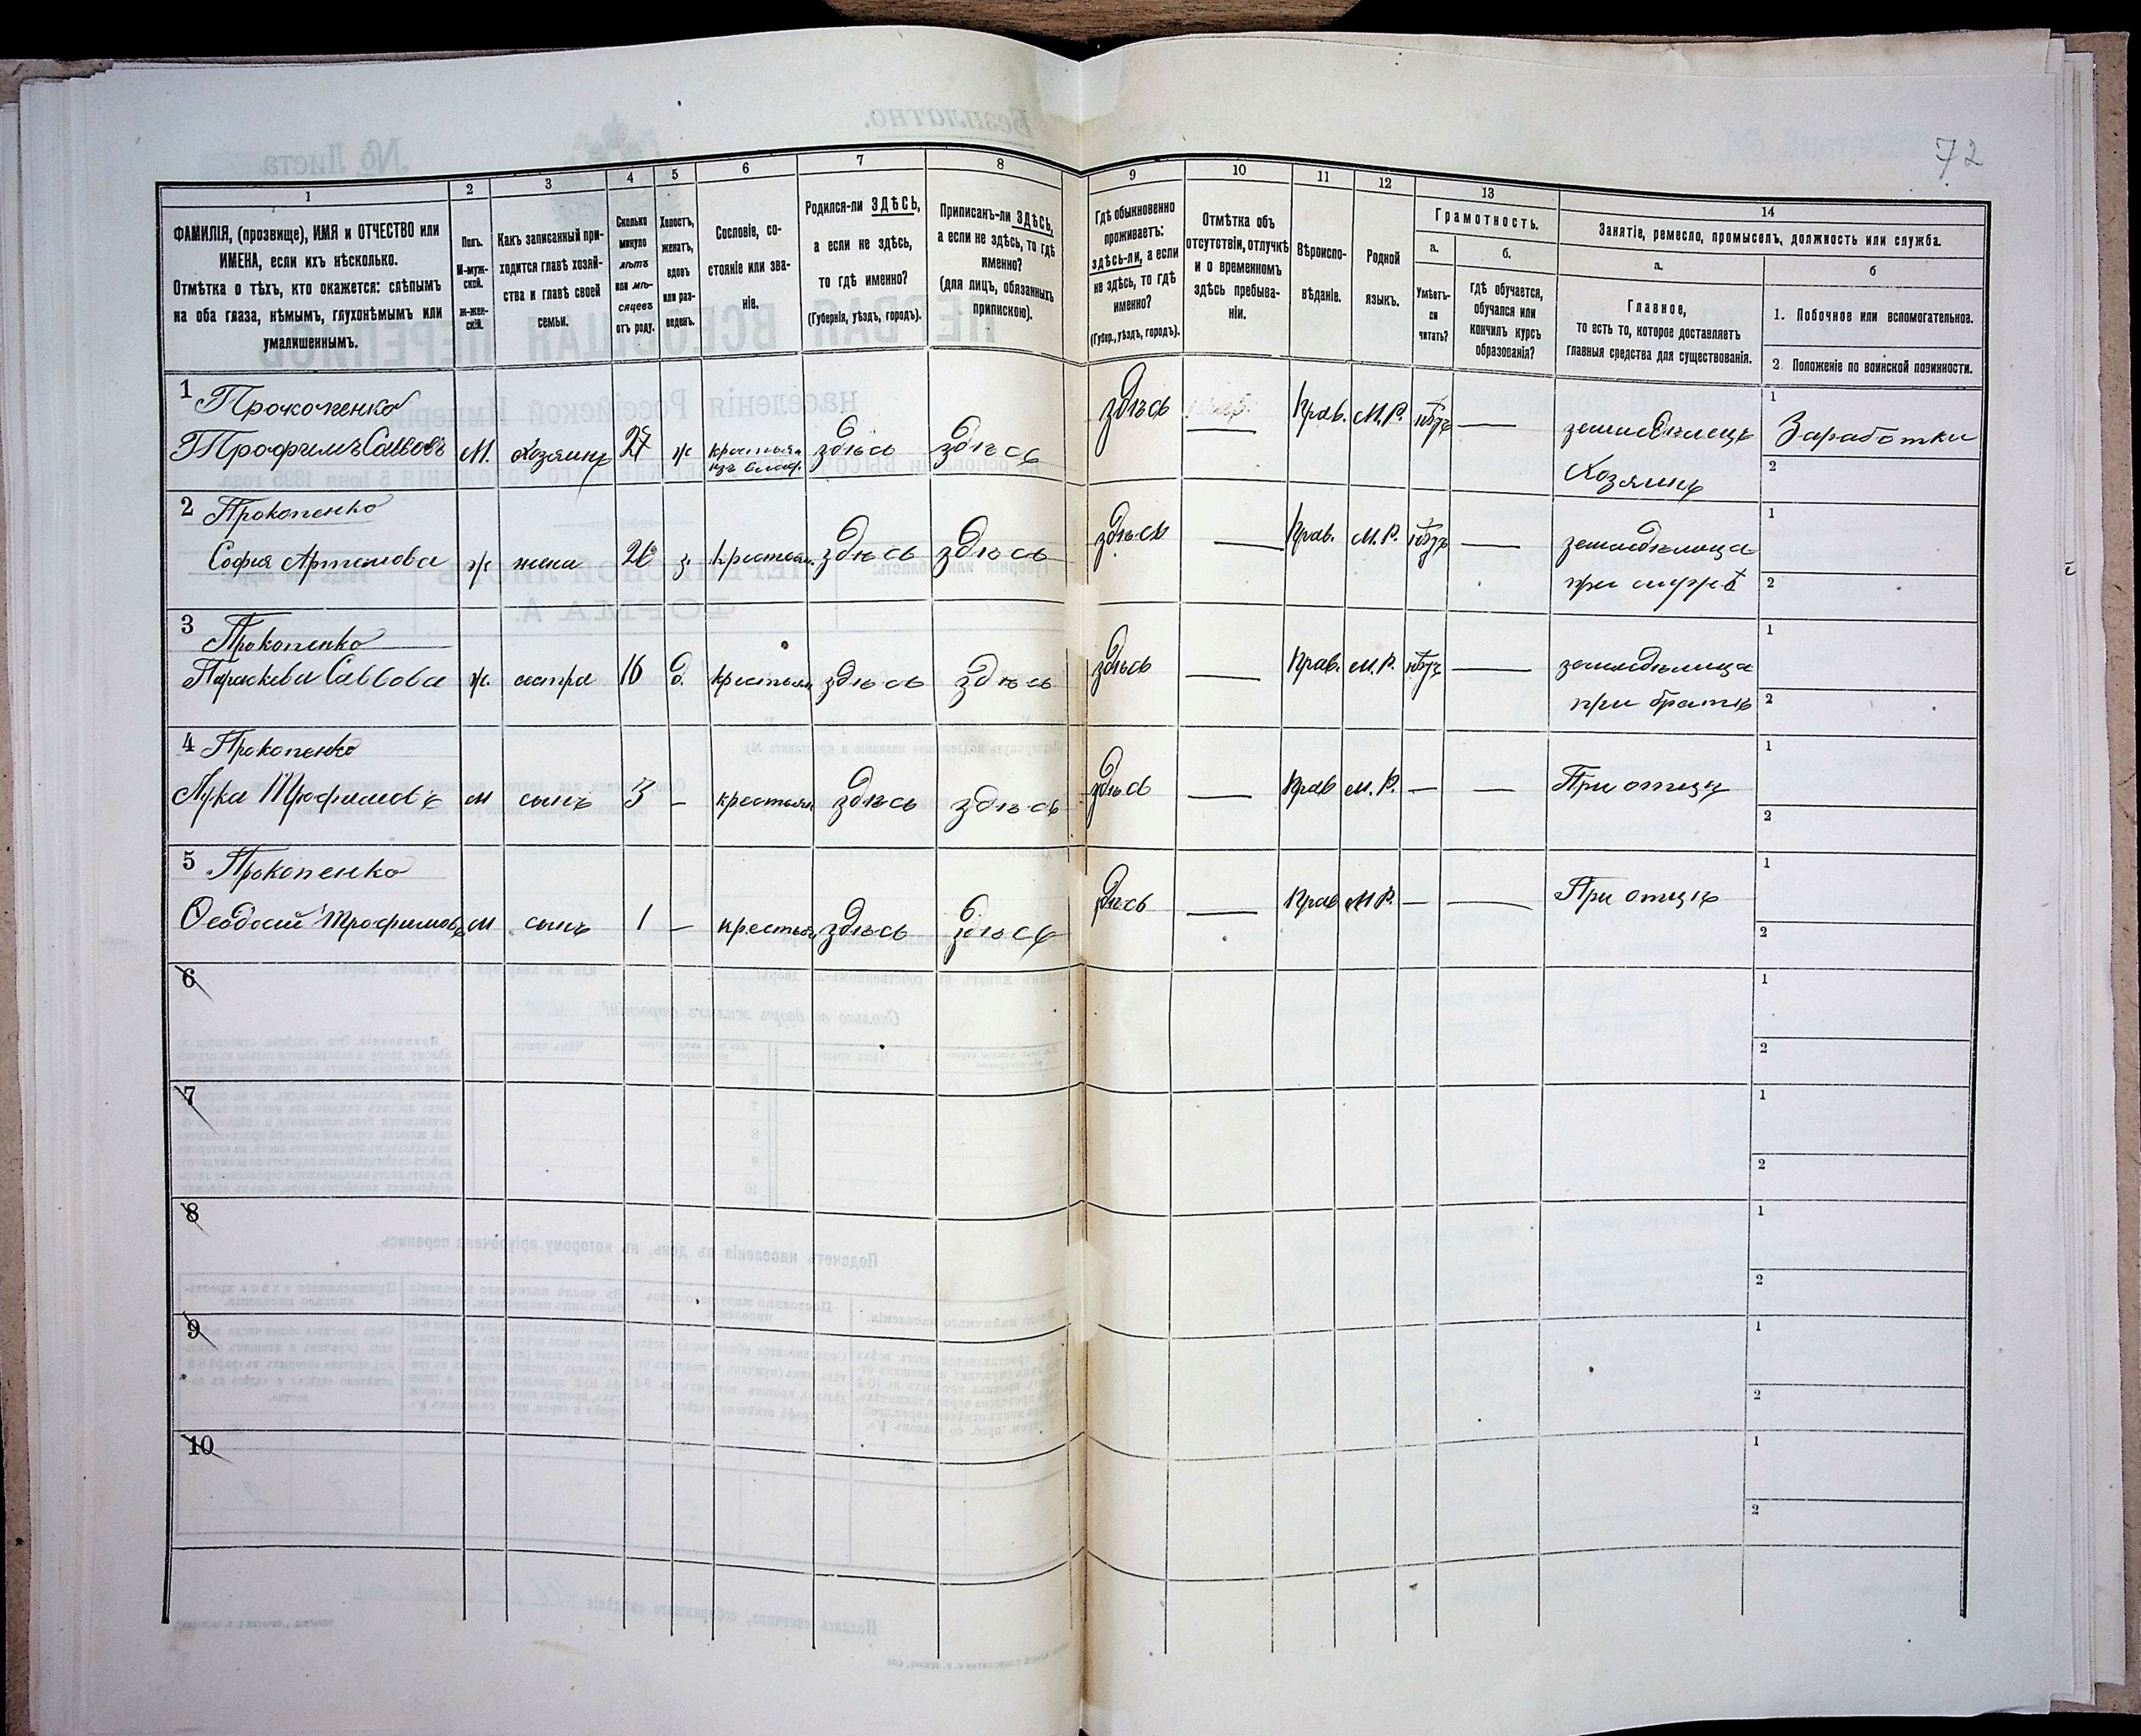 72
1 2 3 4 5 6 7 8 9 10 11 12 13 14
ФАМИЛІЯ, (прозвище), ИМЯ и ОТЧЕСТВО или
ИМЕНА, если ихъ нѣсколько.
Отмѣтка о тѣхъ, кто окажется: слѣпымъ
на оба глаза, нѣмымъ, глухонѣмымъ или
умалишеннымъ.
Полъ.
М-муж-
ской.
ж-жен-
скій.
Какъ записанный при-
ходится главѣ хозяй-
ства и главѣ своей
семьи.
Сколько
минуло
лѣтъ
или мѣ-
сяцевъ
отъ роду.
Холостъ,
женатъ,
вдовъ
или раз-
веденъ.
Сословіе, со-
стояніе или зва-
ніе.
Родился-ли ЗДѢСЬ,
а если не здѣсь,
то гдѣ именно?
(Губернія, уѣздъ, городъ).
Приписанъ-ли ЗДѢСЬ,
а если не здѣсь, то гдѣ
именно?
(для лицъ, обязанныхъ
припискою).
Гдѣ обыкновенно
проживаетъ:
здѣсь-ли, а если
не здѣсь, то гдѣ
именно?
(Губер., уѣздъ, городъ).
Отмѣтка объ
отсутствіи, отлучкѣ
и о временномъ
здѣсь пребыва-
ніи.
Вѣроиспо-
вѣданіе.
Родной
языкъ.
Грамотность.
а.
Умѣетъ-
ли
читать?
б.
гдѣ обучается,
обучался или
кончилъ курсъ
образованія?
Занятіе, ремесло, промыселъ, должность или служба.
а.
Главное,
то есть то, которое доставляетъ
главныя средства для существованія.
б
1. Побочное или вспомогательное.
2 Положеніе по воинской повинности.
1 Прокопенко
Трофимъ Саввовъ М. Хозяинъ 27 ж крестьян здѣсь здѣсь здѣсь — Прав. М.Р. нѣтъ — земледѣлецъ Заработки
изъ владѣ. Хозяинъ
2 Прокопенко
София Артемова ж жена 26 з. крестьян. здѣсь здѣсь здѣсь — Прав. М.Р. нѣтъ — земледѣлица
при мужѣ
3 Прокопенко
Параскева Саввова ж. сестра 16 д. крестьян здѣсь здѣсь здѣсь — Прав. М.Р. нѣтъ — земледѣлица
при братѣ
4 Прокопенко
Лука Трофимовъ м сынъ 3 — крестьян здѣсь здѣсь здѣсь — Прав М.Р. — — При отцѣ
5 Прокопенко
Ѳеодосій Трофимовъ м сынъ 1 — крестьян здѣсь здѣсь здѣсь — Прав М.Р. — — При отцѣ
6
7
8
9
10